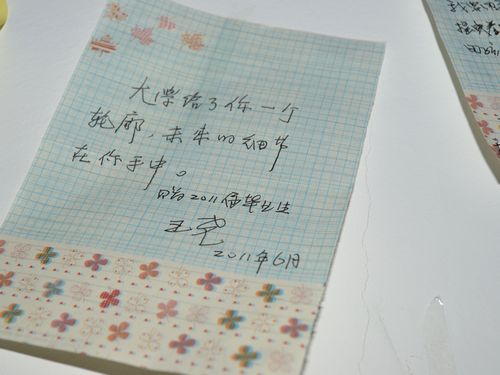 大学给了你一个
轮廓，未来的细节
在你手中。
2011届毕业生
王尧
2011年6月